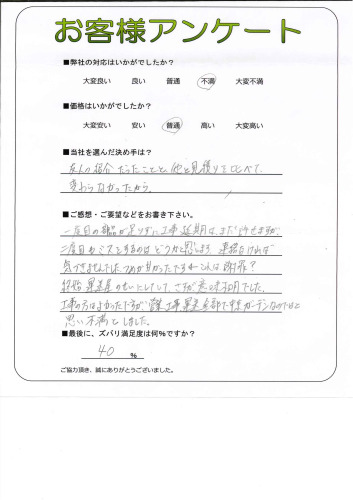 お客様アンケート
■弊社の対応はいかがでしたか?
大変良い 良い 普通 不満 大変不満
■価格はいかがでしたか?
大変安い 安い 普通 高い 大変高い
■当社を選んだ決め手は?
友人の紹介だったことと、他と見積りをくらべて、
変わらなかったから。
■ご感想・ご要望などをお書き下さい。
一度目の部品が足りずに工事延期は、まだ許せますが、
二度目もミスをするのはどうかと思います。連絡なければ
気づきませんでした。つめが甘かったですね。これは謝罪?
結局業者のせいにしていて、さらに意味不明でした。
工事の方はよかったですが 営業 工事 業者 全部で
思い不満としました。
■最後に、ズバリ満足度は何%ですか?
40 %
ご協力頂き、誠にありがとうございました。